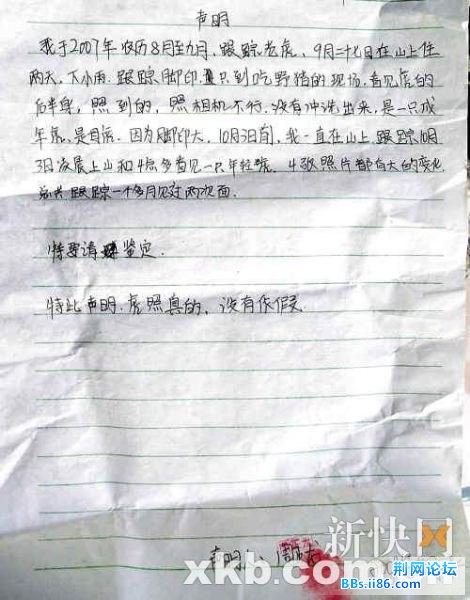 声明
我于2007年农历8月至九月，跟踪老虎，9月二十七日在山上住
两天，下小雨，跟踪脚印，只到吃野猪的现场，看见虎的
后半身，照到的，照相机不行，没有冲洗出来，是一只成
年虎，是母虎，因为脚印大，10月3日前，我一直在山上跟踪10月
3日凌晨上山和4点多看见一只年轻虎，4张照片都有大的变化
总共跟踪一个多月见过两次面。
特要请鉴定。
特此声明，虎照真的，没有作假。
声明人：周
新快网
xkb.com
荆网论坛
BBs.ii86.com